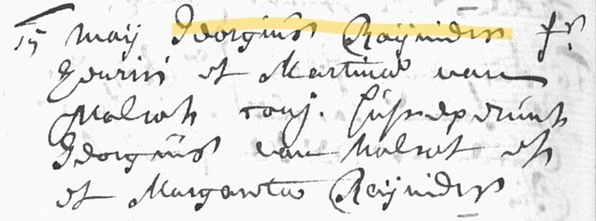 15 maij Georgius Raijnders fs
Henrici et Martinae van
Malsoh conj. susseperunt
Georgius van Malsot et
et Margareta Reijnders